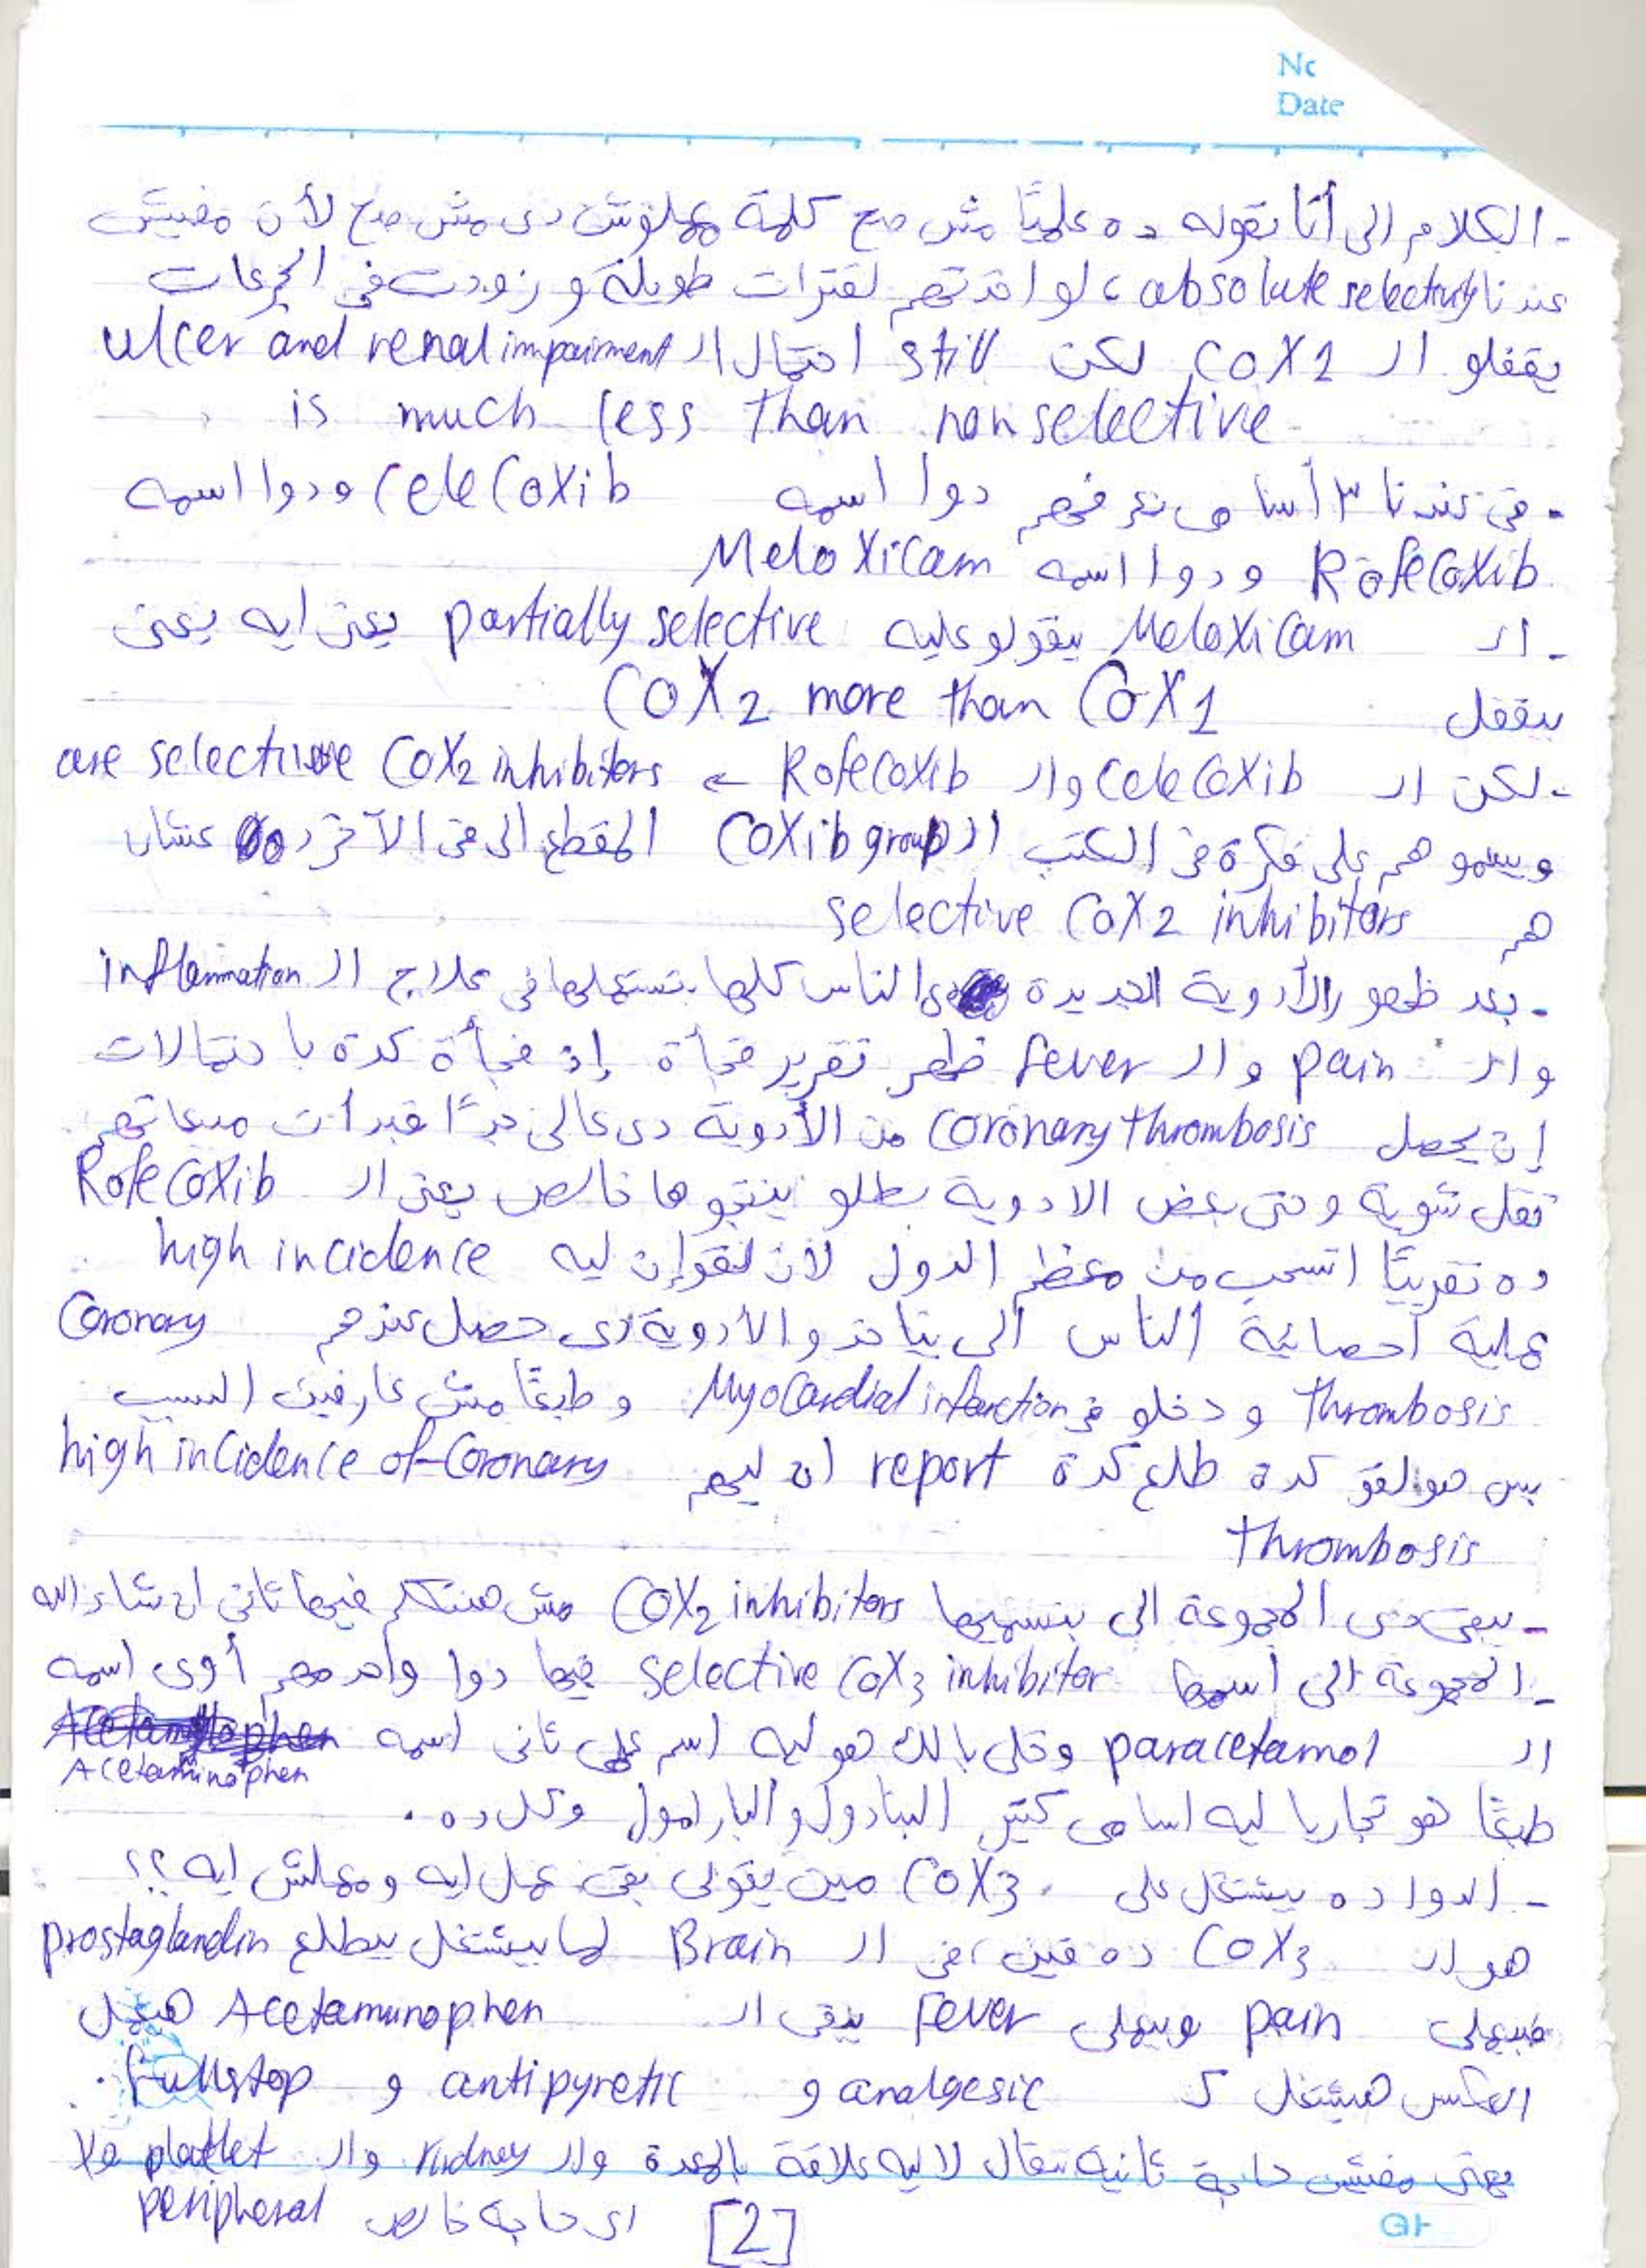 No
Date
- الكلام الى أنا بقوله ده علميًا مش صح كلمة ميعملوش دى مش صح لأن مفيش
عندنا absolute selectivity ، لو اخدتهم لفترات طويلة و زودت فى الجرعات
يقفلو ال COX1 لكن still احتمال ال ulcer and renal impairment
is much less than non selective
- فى عندنا ٣ أسامى نعرفهم دوا اسمه CeleCoxib ودوا اسمه
RofeCoxib ودوا اسمه MeloXicam
- ال MeloXicam بيقولو عليه partially selective يعنى ايه يعنى
بيقفل COX2 more than COX1
- لكن ال CeleCoxib وال RofeCoxib ← are selective COX2 inhibitors
وبيسموهم على فكرة فى الكتب ال COXib group المقطع الى فى الآخر ده عشان
هم selective COX2 inhibitors
- بعد ظهور الأدوية الجديدة دى الناس كلها بتستعملها فى علاج ال inflammation
وال pain وال fever ظهر تقرير فجأة إذ فجأة كدة باحتمالات
إن يحصل coronary thrombosis من الأدوية دى عالى جدًا فبدأت مبيعاتهم
تقل شوية وحتى بعض الادوية بطلو ينتجوها خالص يعنى ال RofeCoxib
ده تقريبًا اتسحب من معظم الدول لأن لقو إن ليه high incidence
عملية احصائية الناس الى بياخدو الأدوية دى حصل عندهم Coronary
Thrombosis و دخلو فى Myocardial infarction و طبعًا مش عارفين السبب
بس هو لقو كدة طلع كدة report ان ليهم high incidence of Coronary
thrombosis
- يبقى دى المجموعة الى بنسميها COX2 inhibitors مش هنتكلم فيها تانى ان شاء الله
- المجموعة الى اسمها selective COX3 inhibitor فيها دوا واحد مهم أوى اسمه
ال paracetamol وخلى بالك هو ليه اسم علمى تانى اسمه
Acetaminophen
طبعًا هو تجاريا ليه اسامى كتير البنادول والبارامول وكل ده .
- الدوا ده بيشتغل على COX3 . مين يقولى بقى عمل ايه ومعملش ايه ؟؟
هو ال COX3 ده فين ، فى ال Brain لما بيشتغل بيطلع prostaglandin
فبيعملى pain وبيعملى Fever يبقى ال Acetamunophen هيعمل
العكس هيشتغل ك analgesic و antipyretic و fullstop .
يعنى مفيش حاجة تانية تتقال لا ليه علاقة بالمعدة ولا ال kidney وال platlet ولا
اى حاجة خالص peripheral
[2]